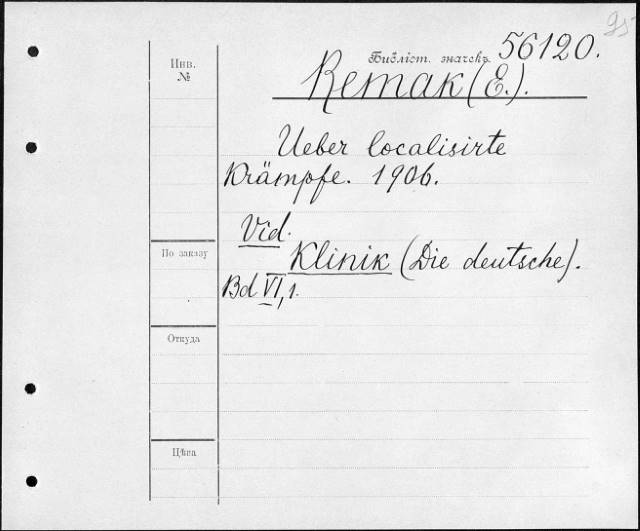 Библіот. значекъ 56120.
Инв.
№
Remak (E.).
Ueber localisirte
Krämpfe. 1906.
Vid.
Klinik (Die deutsche).
Bd VI, 1.
По заказу
Откуда
Цѣна